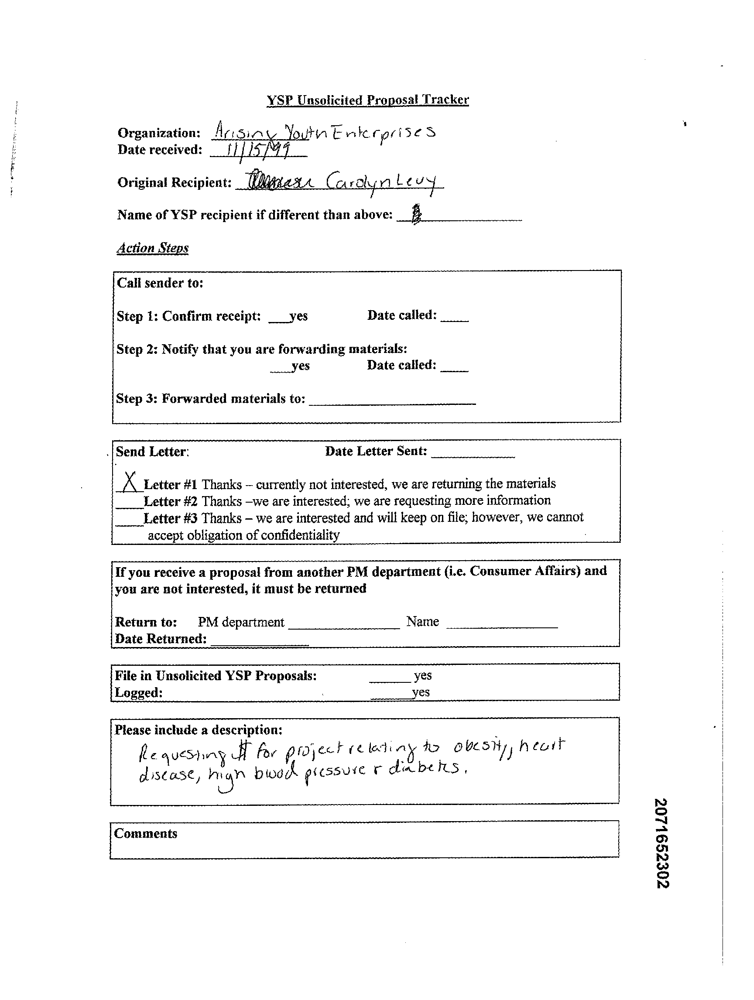 YSP Unsolicited Proposal Tracker
Organization: Arising Youth Enterprises
Date received: 11/15/99
Original Recipient: Carolyn Levy
Name of YSP recipient if different than above:
Action Steps
Call sender to:
Step 1: Confirm receipt: ___yes Date called: ____
Step 2: Notify that you are forwarding materials:
___yes Date called: ____
Step 3: Forwarded materials to: ____
Send Letter: Date Letter Sent: ____
X Letter #1 Thanks – currently not interested, we are returning the materials
____Letter #2 Thanks –we are interested; we are requesting more information
____Letter #3 Thanks – we are interested and will keep on file; however, we cannot
accept obligation of confidentiality
If you receive a proposal from another PM department (i.e. Consumer Affairs) and
you are not interested, it must be returned
Return to: PM department ____ Name ____
Date Returned: ____
File in Unsolicited YSP Proposals: ____ yes
Logged: ____yes
Please include a description:
Requesting $ for project relating to obesity, heart
disease, high blood pressure & diabetes.
Comments
2071652302